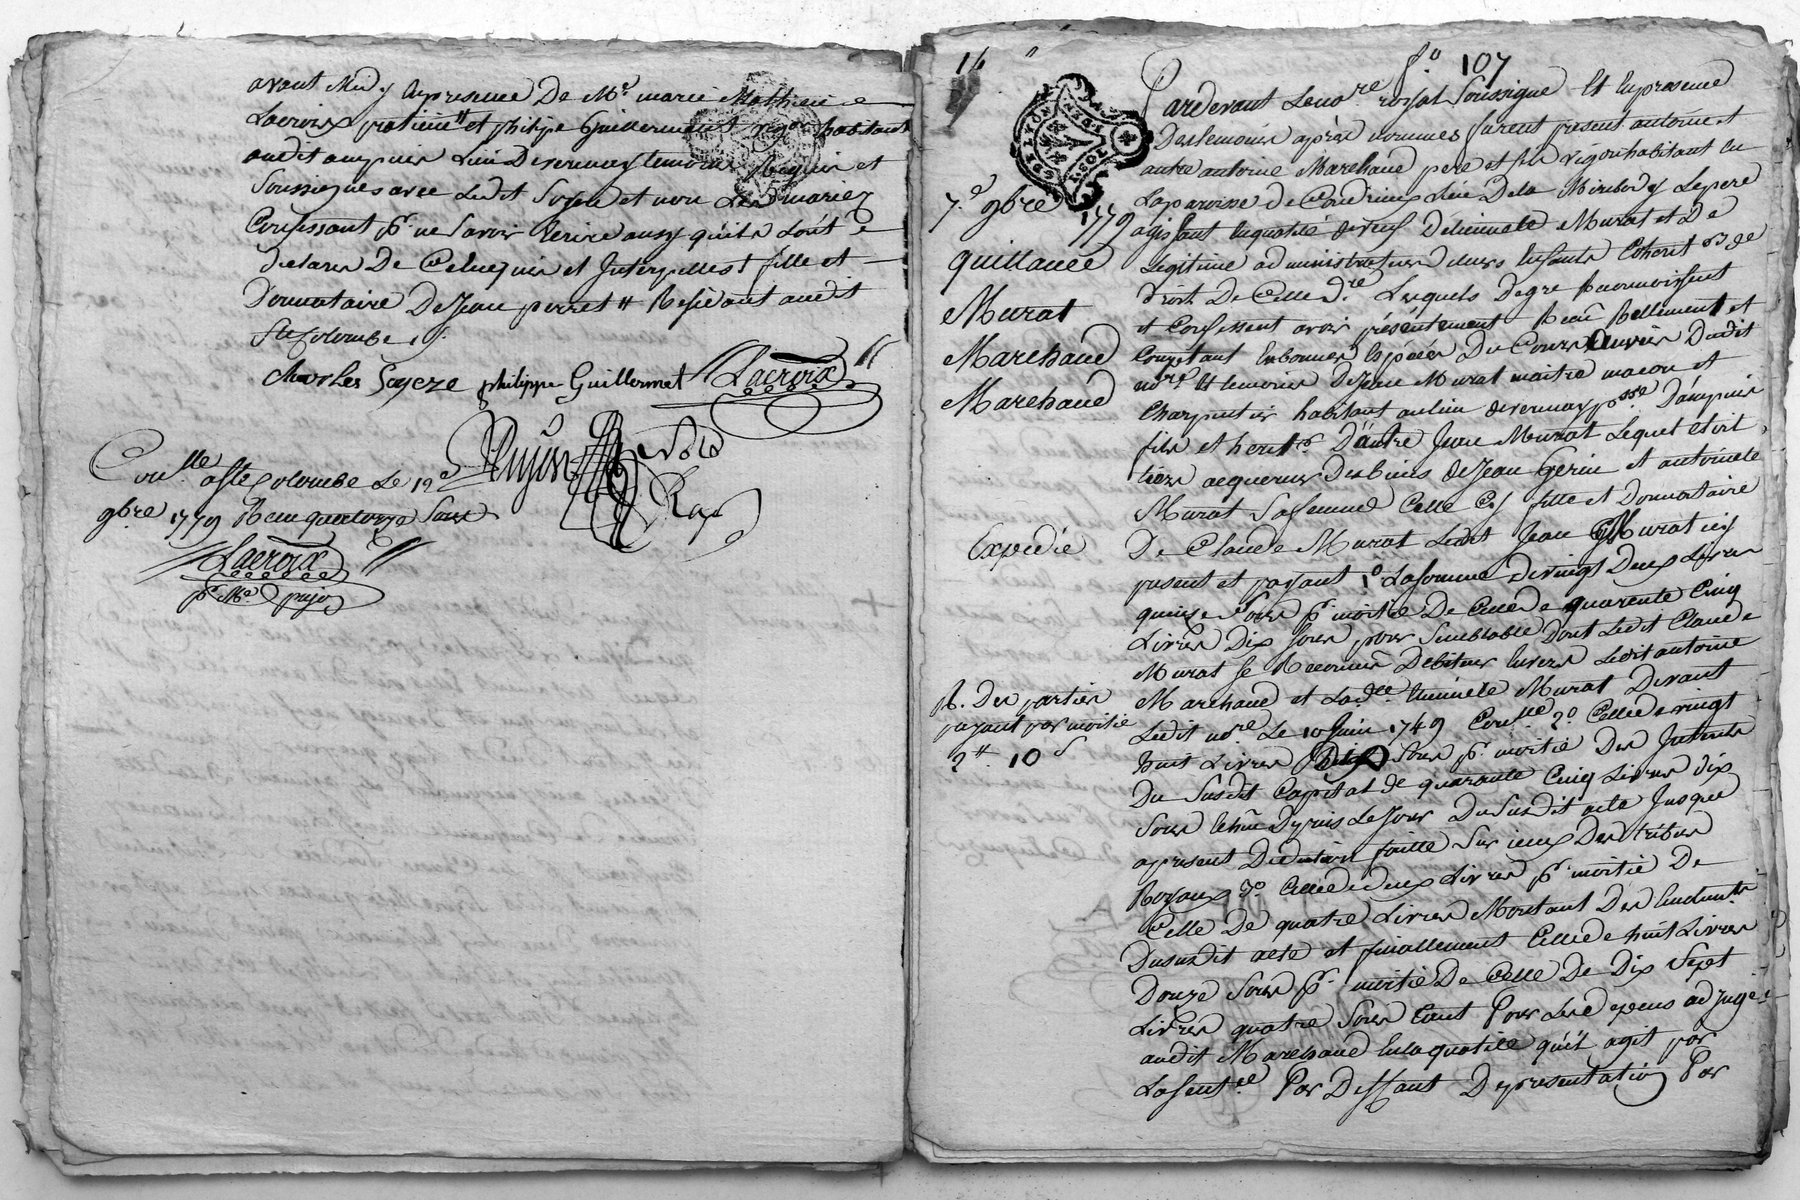 avant Midy en presence De Me. marie Mathieu
Lacroix praticien et philipe Guillermet vigon habitant
audit ampuis Lieu De verenay temoins Requis et
Soussignés avec Ledit Soyeze et non Les mariez
Confessant pr. ne Savoir Ecrire ainsy quils L'ont
declarer De Ce Enquis et Interpellés / fille et
Donnataire De Jean perret # Residant audit
Ste Colombe
Charles Soyeze philippe Guillermet Lacroix
Pujon
Conlle. a Ste Colombe Le 12e
9bre 1779 Recu quatorze Sous
Lacroix
pr Me pujo
14 "
fo. 107
7e. 9bre 1779
quittance
Murat
Marchand
Marchand
Expedié
Des parties
payant par moitié
2# 10 s
Pardevant Le nore royal Soussigné Et En presence
Des temoins après nommés furent present antoine et
autre antoine Marchand pere et fils vigon habitant en
La paroisse de Condrieux Lieu De la Miriboly Le pere
agissant En qualité de veuf D'etiennete Murat et De
Legitime administrateur De leurs Enfants Cohorit de
droit De Celle d.re Lesquels De gré Reconnoissent
et Confessent avoir présentement Recu Reellement et
Comptant En bonnes Espéces Du Cours En vüe Dudit
nore. Et temoins De Jean Murat maitre macon et
Charpentier habitant au Lieu de verenay psse D'ampuis
fils et herit.r D'autre Jean Murat Lequel étoit
tiers acquereur Des biens De Jean Gerin et antoinete
Murat Sa femme Celle Cy fille et Donnataire
De Claude Murat Ledit Jean Murat icy
present et payant 1o La Somme De vingt Deux Livres
quinze Sous pr. moitié De Celle De quarente Cinq
Livres Dix Sous pour Semblable Dont Ledit Claude
Murat Se Reconnu Débiteur Envers Ledit antoine
Marchand et La dte. Etiennete Murat Devant
Ledit nore Le 10 Juin 1749 Conlle 2o Celle De vingt
huit Livres Dix Sous pr. moitié Des Interets
Du Susdit Capital de quarante Cinq Livres Dix
Sous Echu Depuis Le Jour Du Susdit acte Jusques
apresent Déduction faitte Sur iceux Des tribus
Royaux 3o Celle De deux Livres pr. moitié De
Celle De quatre Livres Montant Des Endunts
Dususdit acte et finallement Celle De huit Livres
Douze Sous pr. moitié De Celle De Dix Sept
Livres quatre Sous tant Pour Les depens adjugé
audit Marchand En la qualité qu'il agit par
La Sentce. Par Deffaut De presentation Par